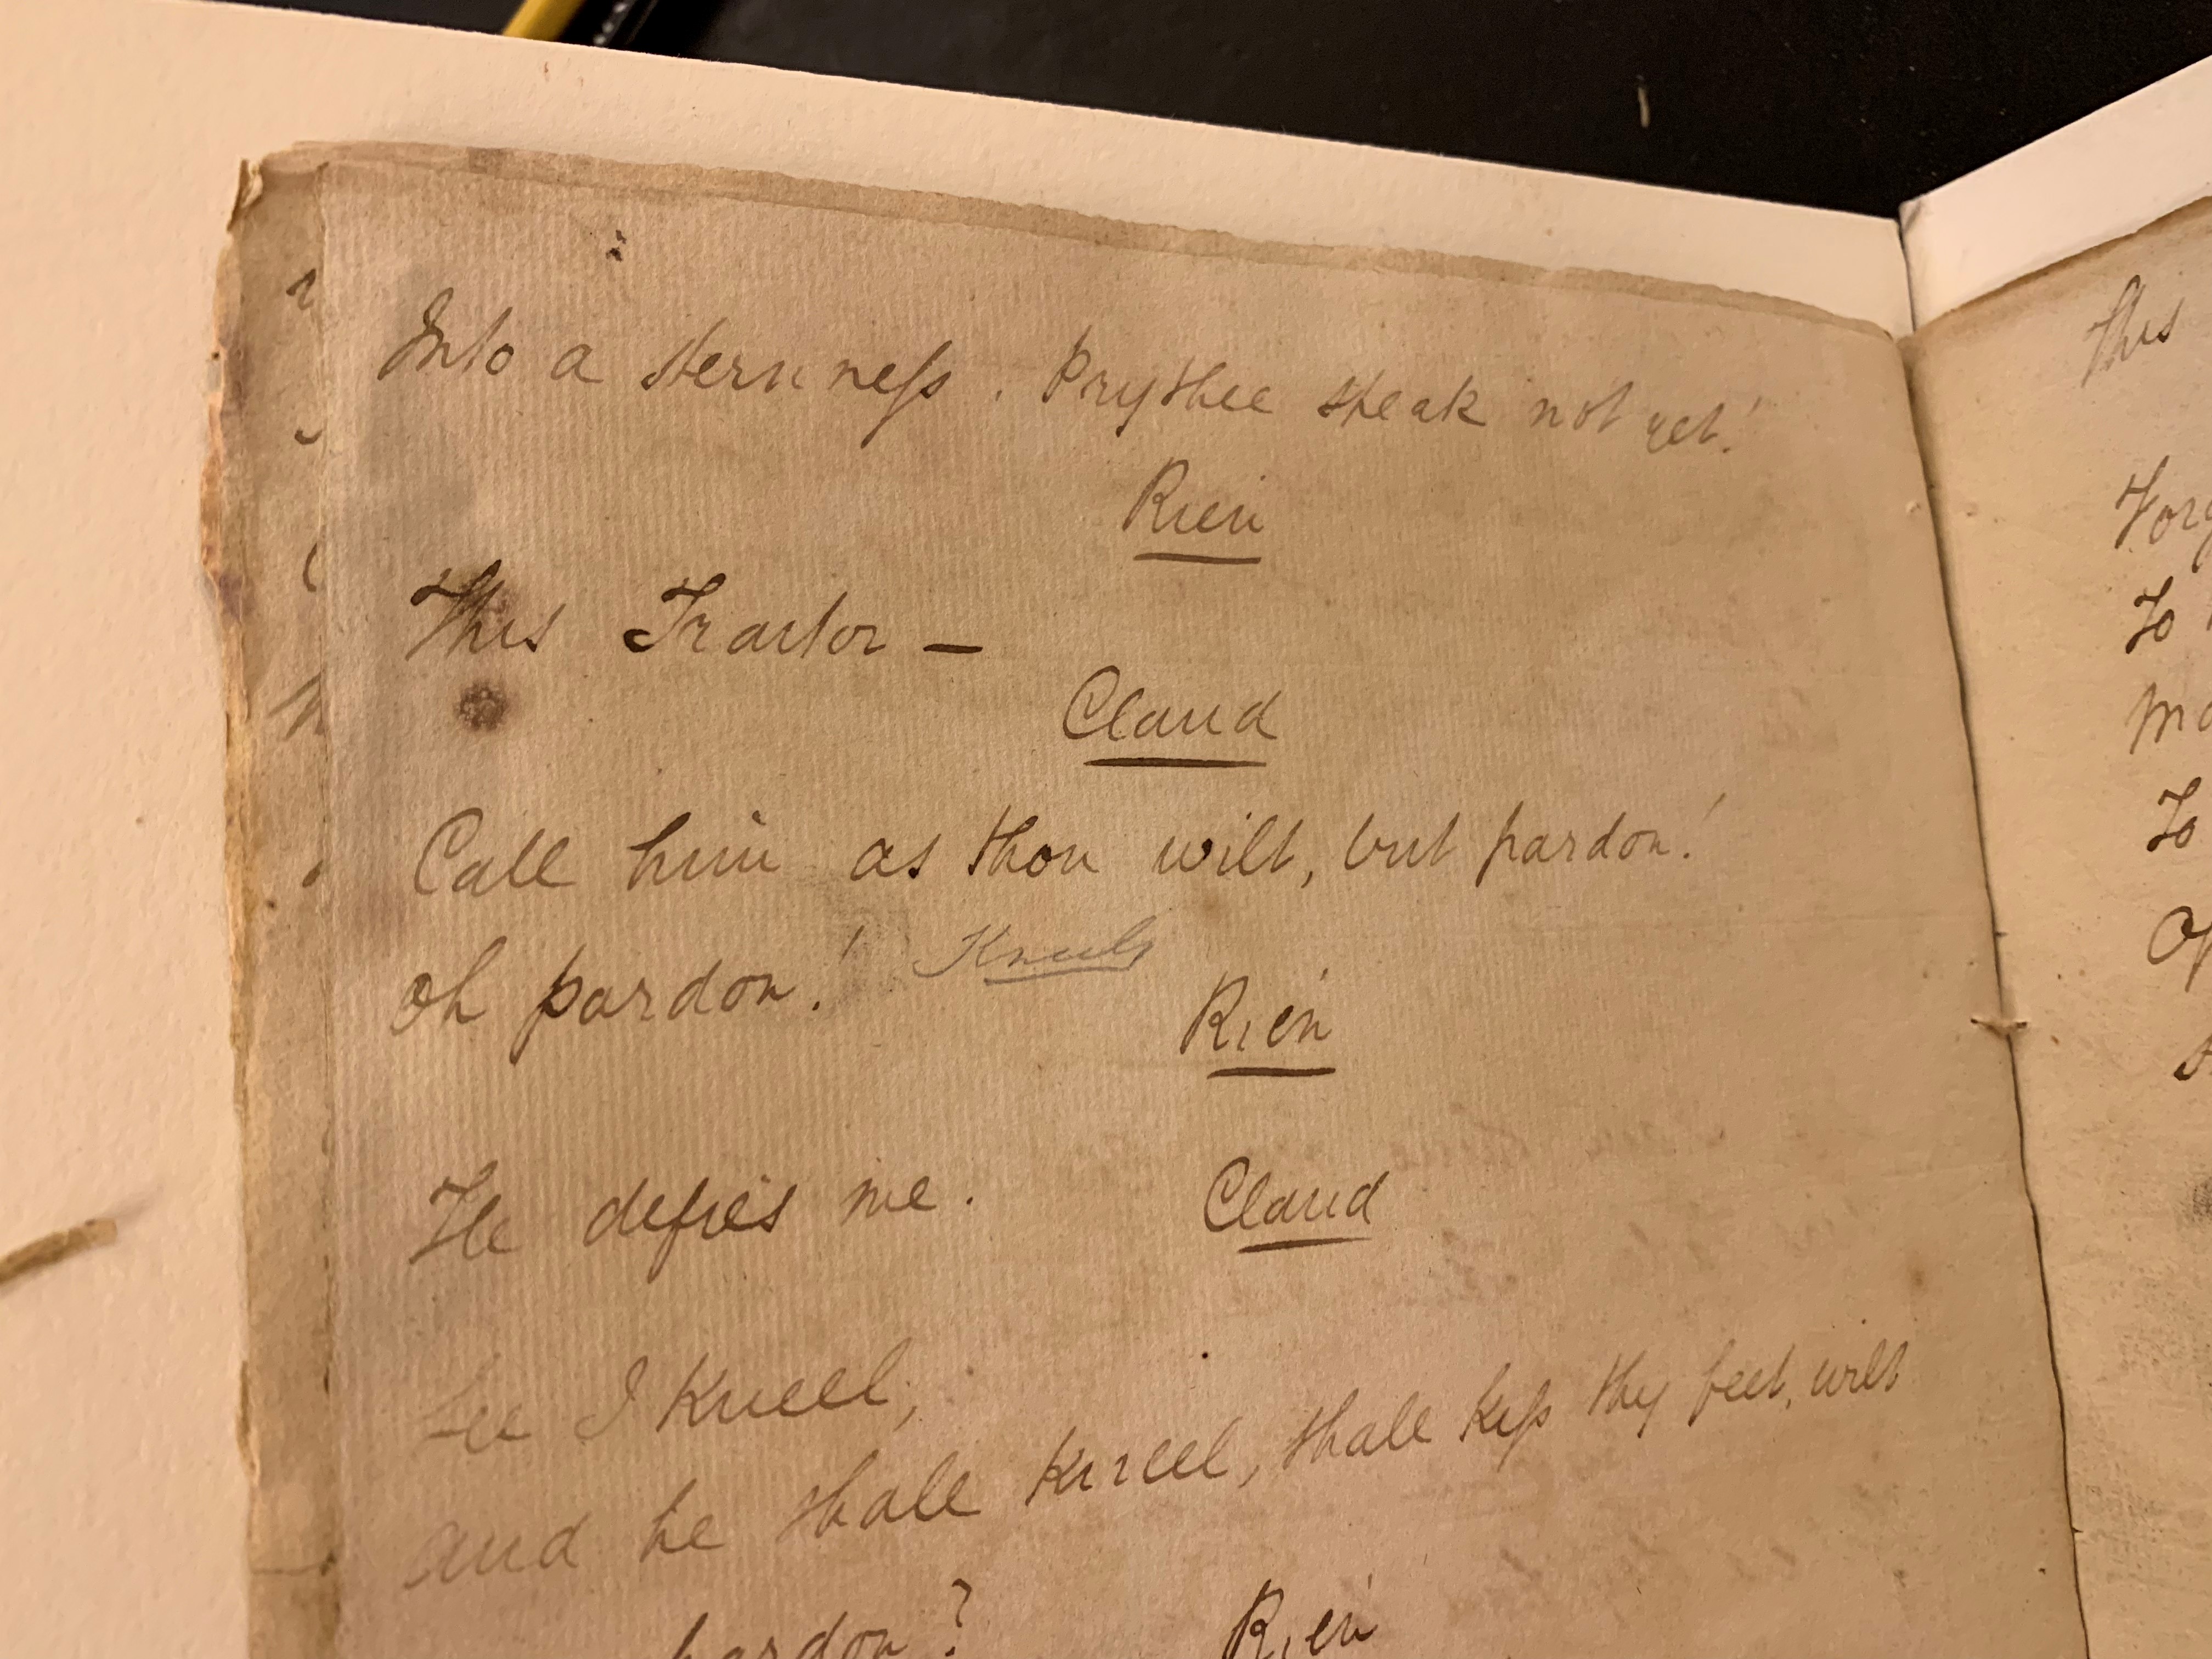 Into a sternness. Prythee speak not yet!
Rien
This Traitor —
Claud
Call him as thou wilt, but pardon!
Oh pardon! Kneels
Rien
He defies me.
Claud
See I kneel;
And he shall kneel, shall kiss thy feet, wilt
pardon?
Rien
this
To
To